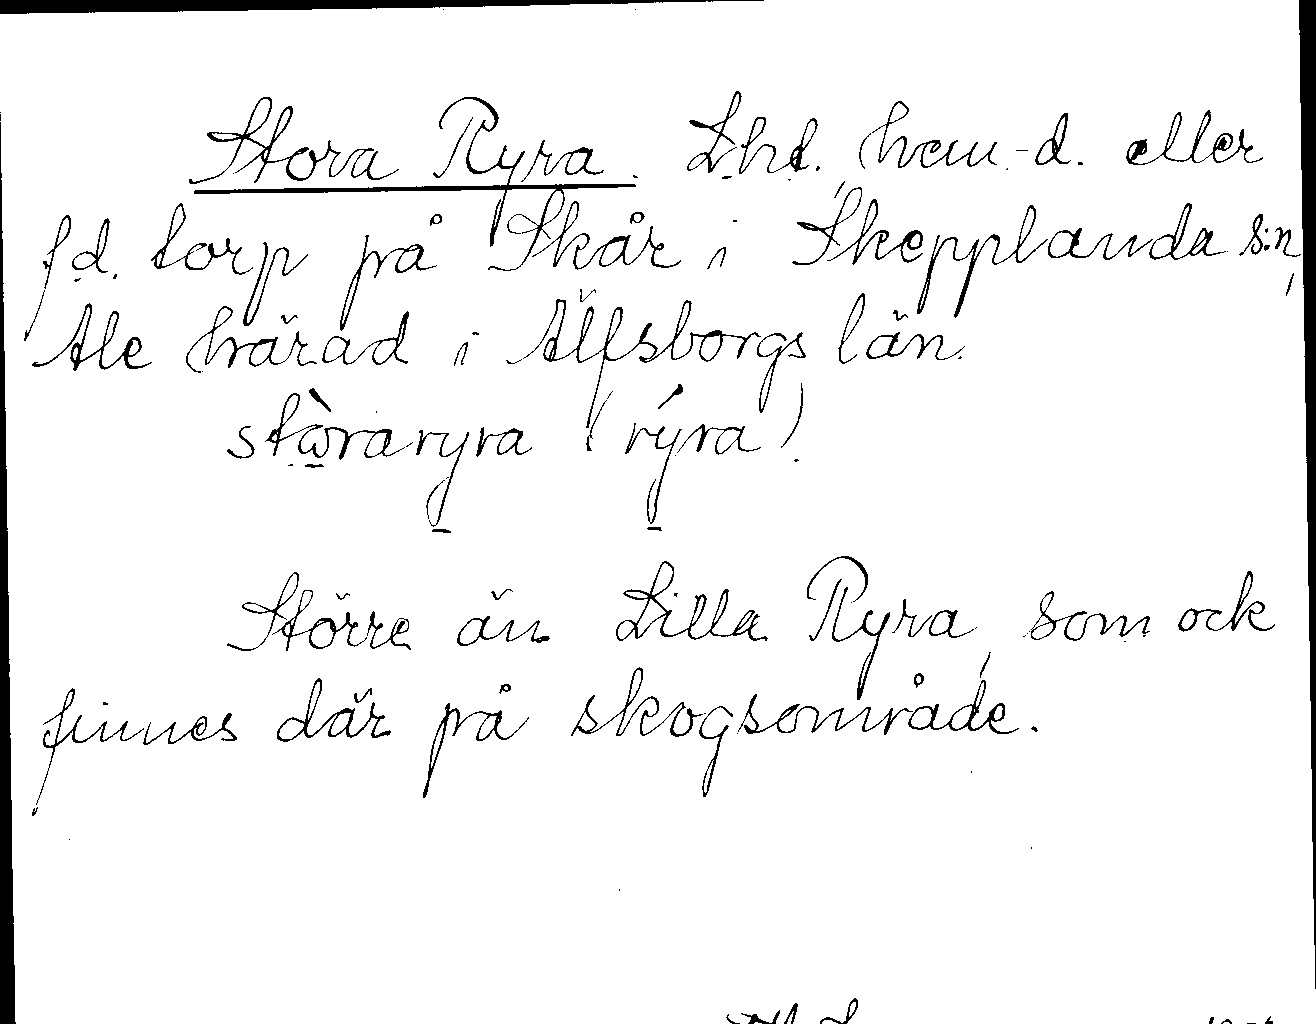 Stora Ryra. Lht, hem-d. eller
f.d. torp på Skår i Skepplanda s:n,
Ale härad i Älfsborgs län.
stὼraryra (rýra).
Större än Lilla Ryra, som ock
finnes där på skogsområde.